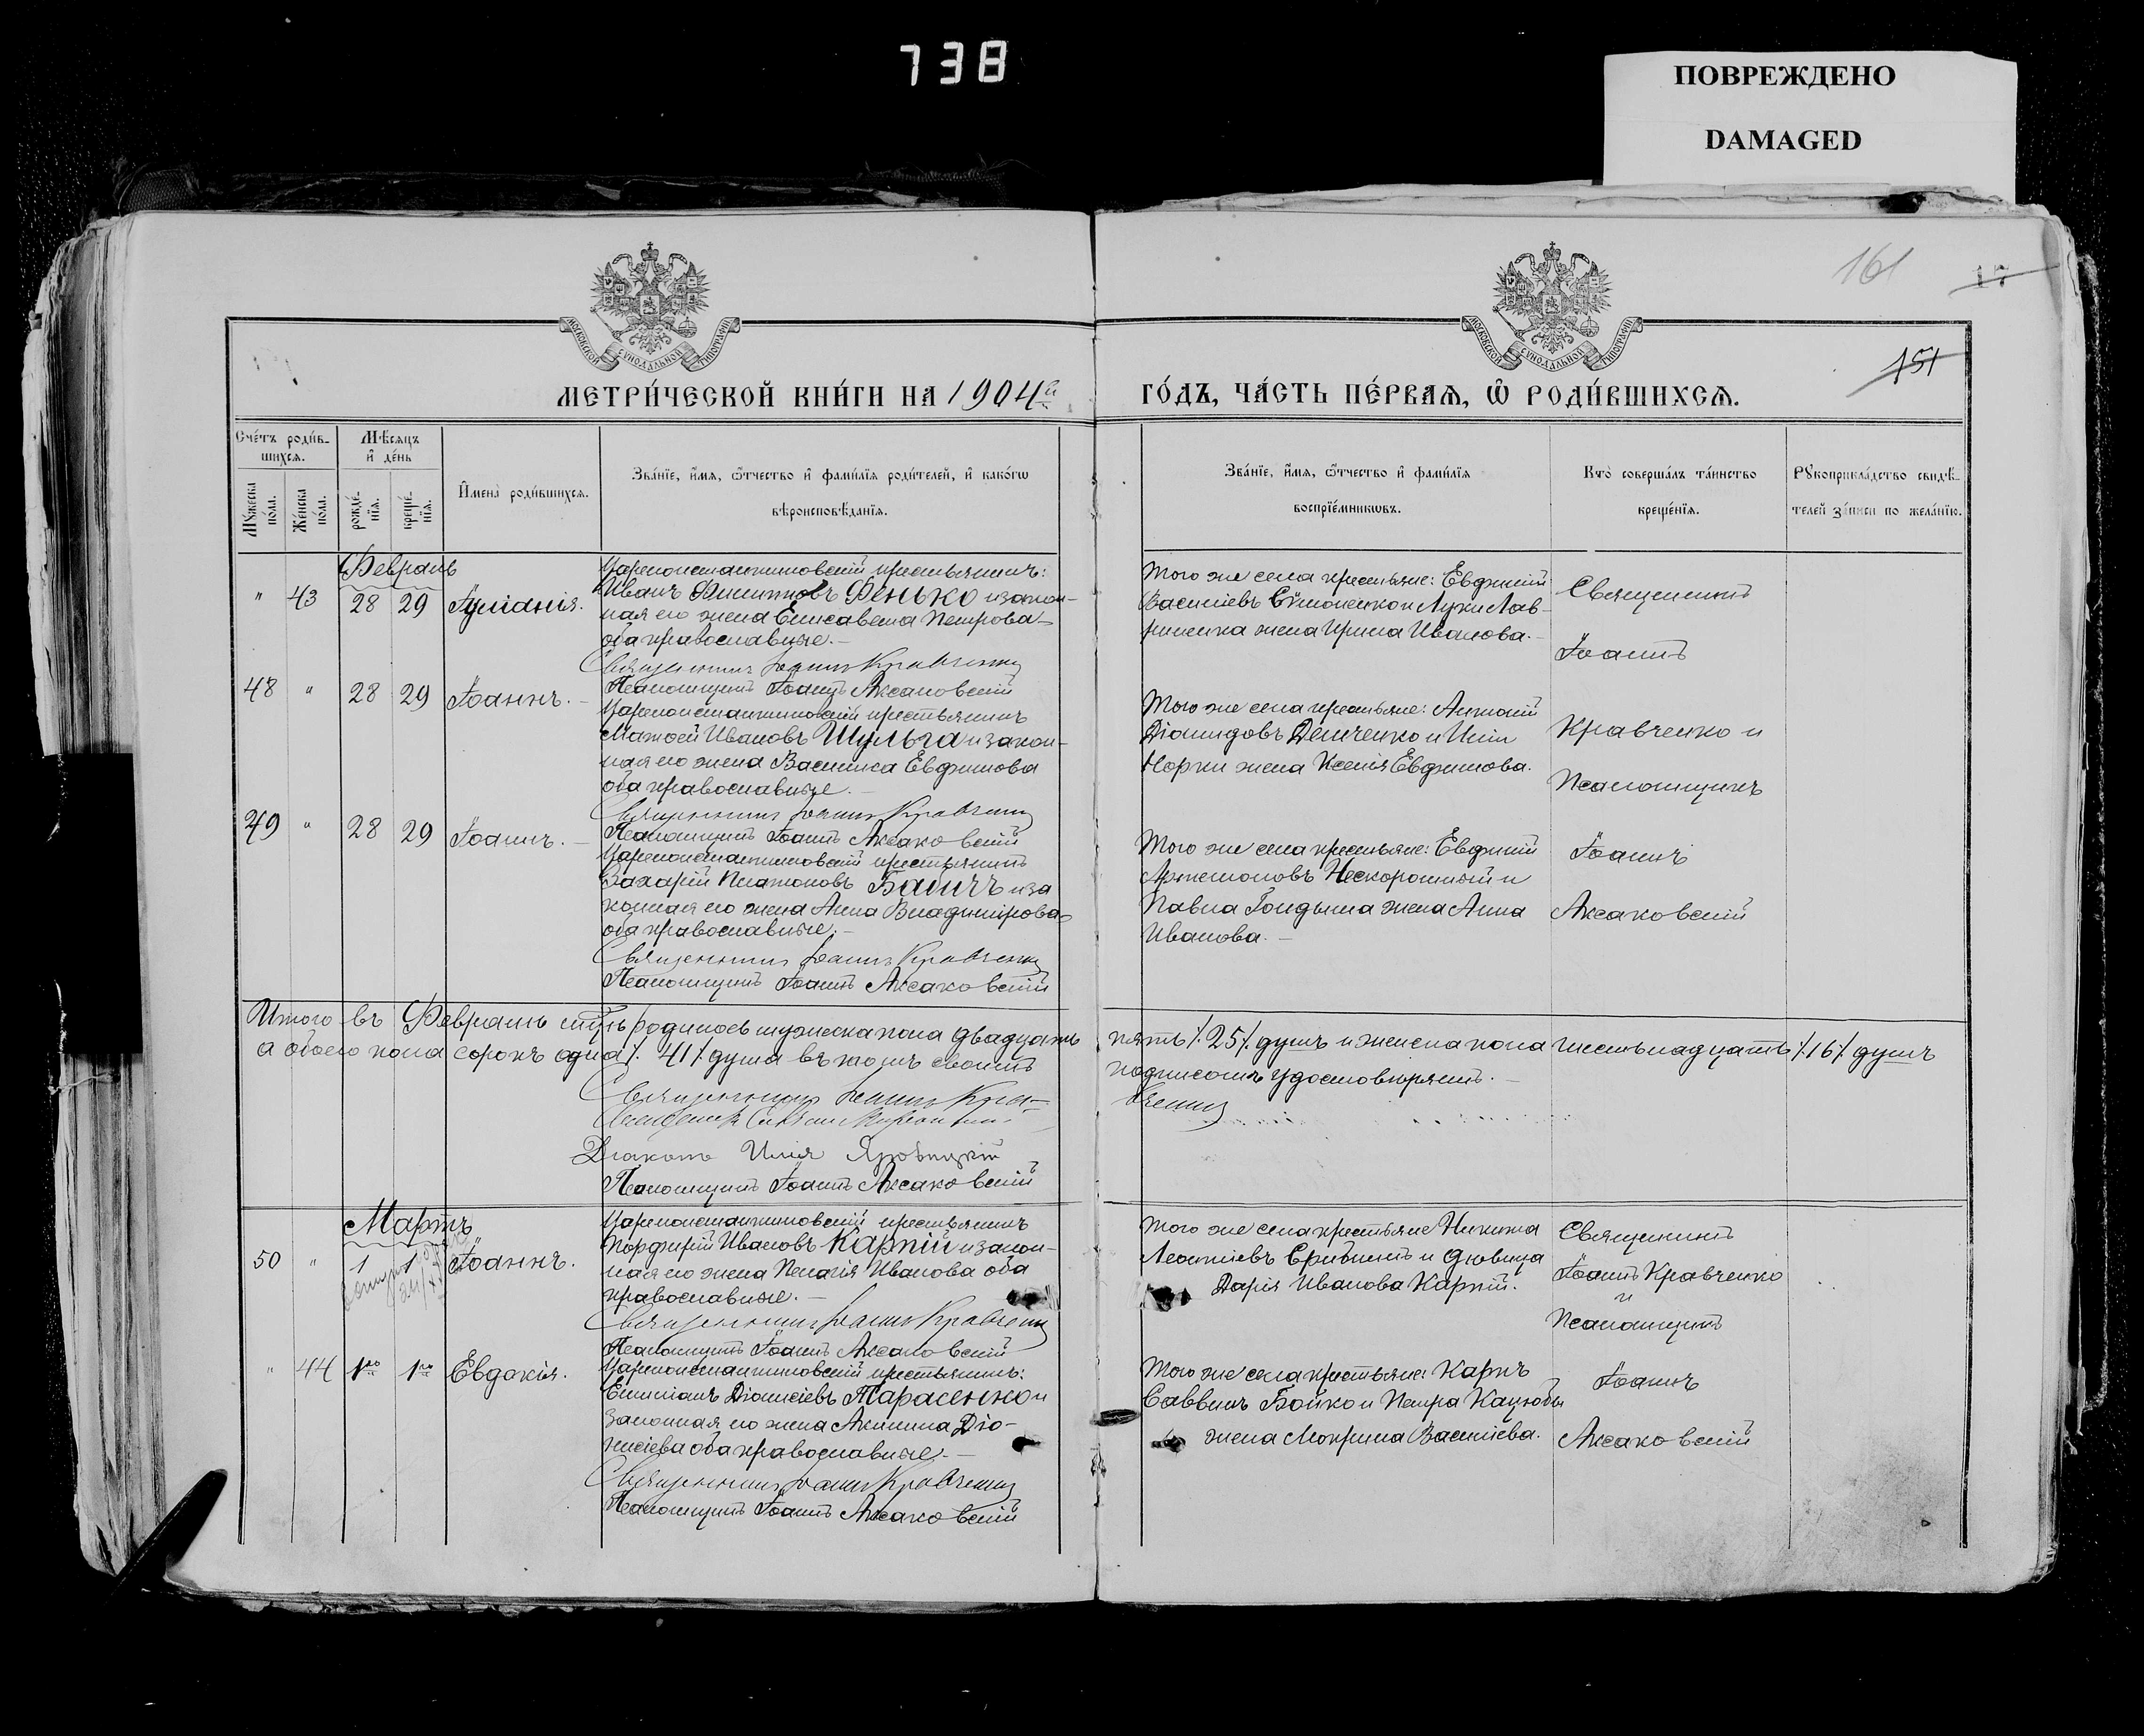 738
ПОВРЕЖДЕНО
DAMAGED
161
17
151
МОСКОВСКОЙ СѴНОДАЛЬНОЙ ТИПОГРАФІИ
МОСКОВСКОЙ СѴНОДАЛЬНОЙ ТИПОГРАФІИ
МЕТРИ́ЧЕСКОЙ КНИ́ГИ НА 1904й
ГО́ДЪ, ЧА́СТЬ ПЕ́РВАѦ, Ѡ҆ РОДИ́ВШИХСѦ.
Сче́тъ роди́в-
шихсѧ.
Мѣ́сѧцъ
и҆ де́нь
Мꙋ́жеска по́ла.
Же́нска по́ла.
рожде́-
нїѧ.
креще́-
нїѧ.
И҆мена̀ роди́вшихсѧ.
Зва́нїе, и҆́мѧ, ѻ҆́тчество и҆ фами́лїѧ роди́телей, и҆ како́гѡ
вѣроисповѣ́данїѧ.
Зва́нїе, и҆́мѧ, ѻ҆́тчество и҆ фами́лїѧ
воспрїе́мникѡвъ.
Кто̀ соверша́лъ та́инство
креще́нїѧ.
Рꙋкоприкла́дство свидѣ́-
телей за́писи по жела́нїю.
Февраль
" 43 28 29 Іуліанія.
Цареконстантиновскій крестьянинъ:
Иванъ Филипповъ Фенько и закон-
ная его жена Елисавета Петрова
оба православные.-
Священникъ Іоаннъ Кравченко
Псаломщикъ Іоаннъ Аксаковскій
Того же села крестьяне: Евфимій
Василіевъ Симоненко и Луки Лав-
риненка жена Ирина Иванова.-
Священникъ
Іоаннъ
48 " 28 29 Іоаннъ.-
Цареконстантиновскій крестьянинъ
Матѳей Ивановъ Шульга и закон-
ная его жена Василиса Евфимова
оба православные.-
Священникъ Іоаннъ Кравченко
Псаломщикъ Іоаннъ Аксаковскій
Того же села крестьяне: Антоній
Діомидовъ Демченко и Иліи
Норки жена Ксенія Евфимова.
Кравченко и
Псаломщикъ
49 " 28 29 Іоаннъ.-
Цареконстантиновскій крестьянинъ
Захарій Платоновъ Бабичъ и за
конная его жена Анна Владимірова
оба православные.-
Священникъ Іоаннъ Кравченко
Псаломщикъ Іоаннъ Аксаковскій
Того же села крестьяне: Евфимій
Артемоновъ Нескоромный и
Павла Гондыла жена Анна
Иванова.-
Іоаннъ
Аксаковскій
Итого въ Февралѣ родилось мужеска пола двадцать пять /. 25 /. душъ и женска пола шестьнадцать /. 16 /. душъ
а обоего пола сорокъ одна /. 41 /. душа въ томъ своимъ подписомъ удостовѣряемъ.-
Священникъ Іоаннъ Кра-
вченко
Діаконъ Илія
Псаломщикъ Іоаннъ Аксаковскій
Мартъ
50 " 1 1 Іоаннъ.
Цареконстантиновскій крестьянинъ
Порфирій Ивановъ Карпій и закон-
ная его жена Пелагія Иванова оба
православные.-
Священникъ Іоаннъ Кравченко
Псаломщикъ Іоаннъ Аксаковскій
Того же села крестьяне Никита
Леонтіевъ и дѣвица
Дарія Иванова Карпій.
Священникъ
Іоаннъ Кравченко
и
Псаломщикъ
" 44 1го 1го Евдокія.
Цареконстантиновскій крестьянинъ:
Емиліанъ Діонисіевъ Тарасенко и
законная его жена Акилина Діо-
нисіева оба православные.-
Священникъ Іоаннъ Кравченко
Псаломщикъ Іоаннъ Аксаковскій
Того же села крестьяне: Карпъ
Саввинъ Бойко и Петра Кацюбы
жена Мокрина Василіева.
Іоаннъ
Аксаковскій